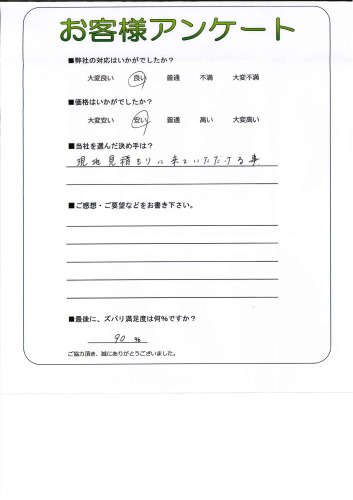 お客様アンケート
■弊社の対応はいかがでしたか？
大変良い 良い 普通 不満 大変不満
■価格はいかがでしたか？
大変安い 安い 普通 高い 大変高い
■当社を選んだ決め手は？
現地見積もりに来ていただける事
■ご感想・ご要望などをお書き下さい。
■最後に、ズバリ満足度は何％ですか？
90 %
ご協力頂き、誠にありがとうございました。